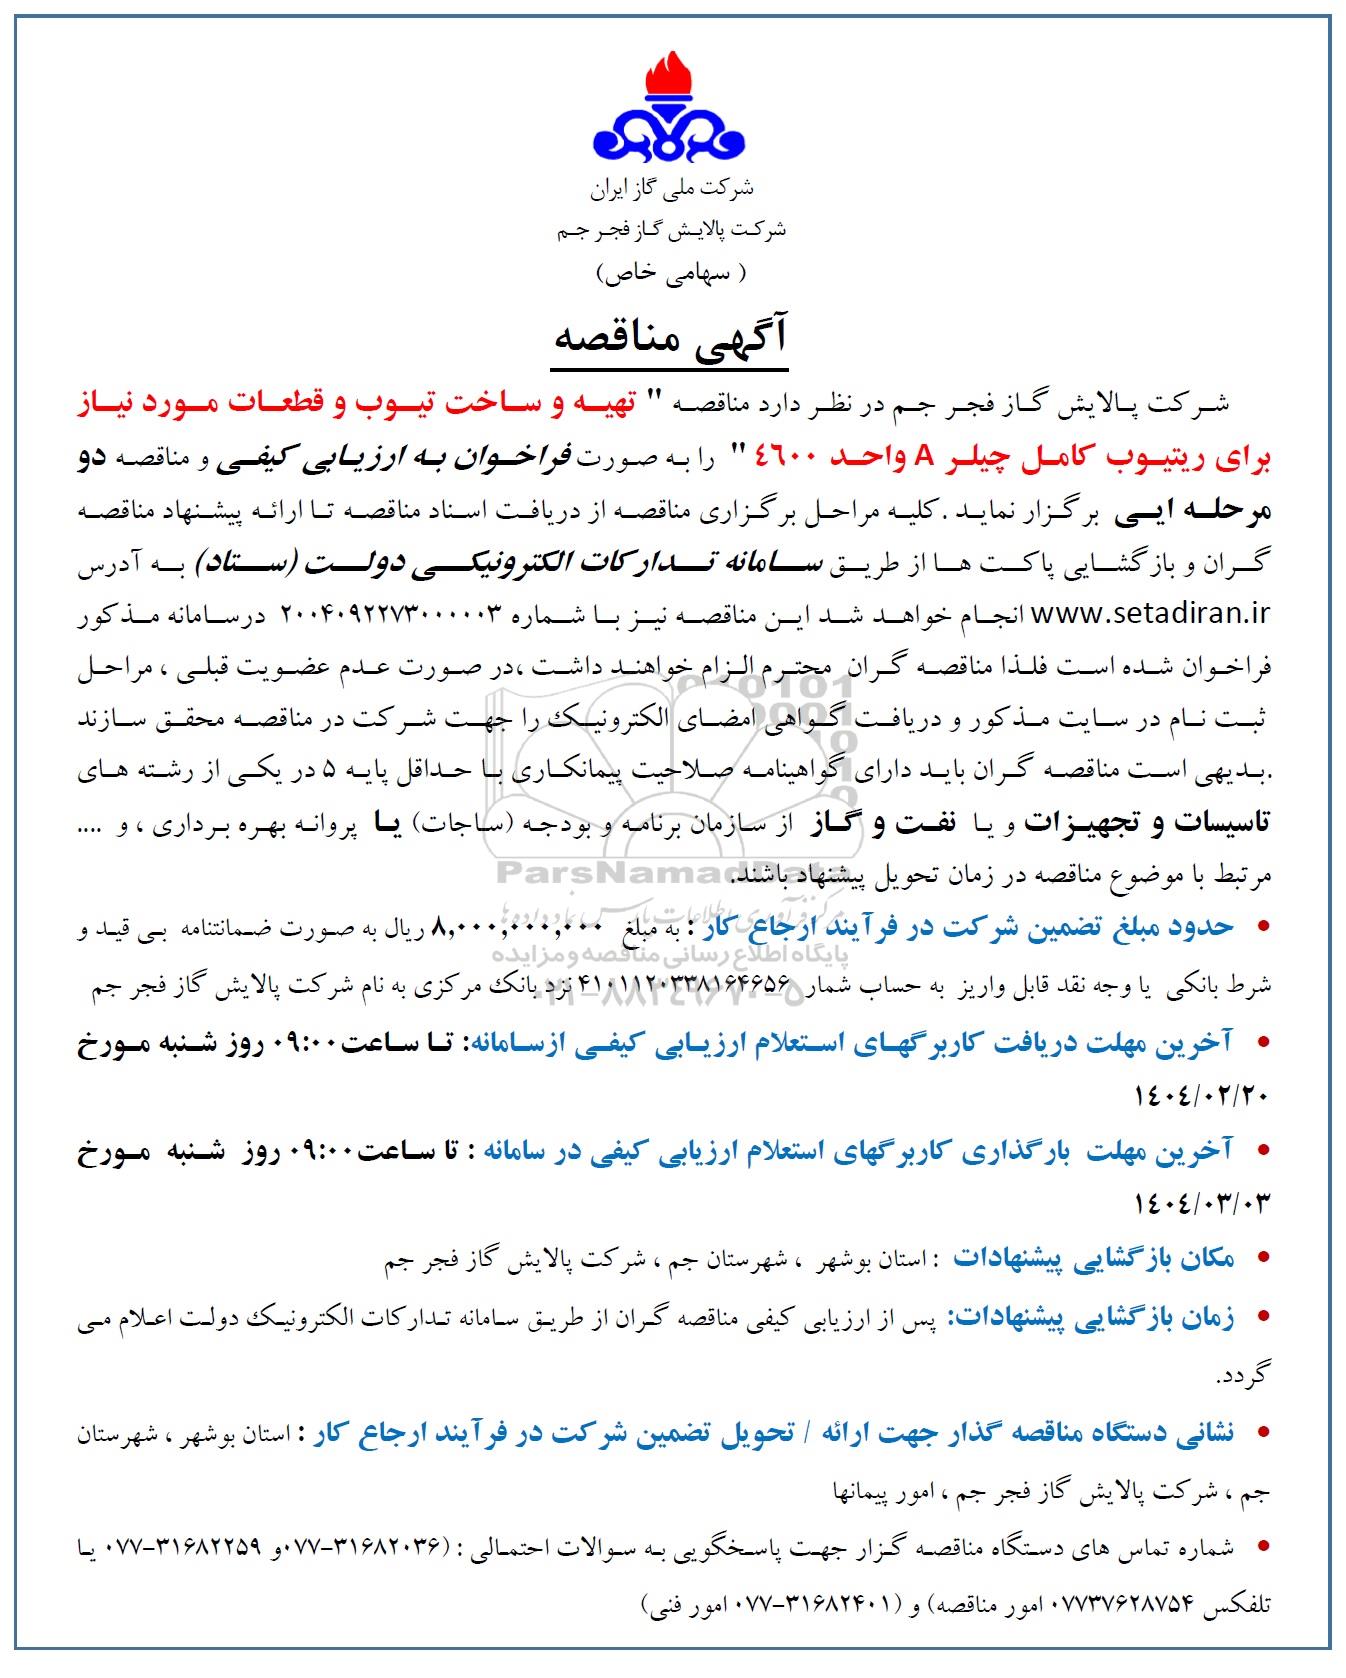 شرکت ملی گاز ایران
شرکت پالایش گاز فجر جم
( سهامی خاص)
آگهی مناقصه
شرکت پالایش گاز فجر جم در نظر دارد مناقصه " تهیه و ساخت تیوب و قطعات مورد نیاز
برای ریتیوب کامل چیلر A واحد ٤٦٠٠ " را به صورت فراخوان به ارزیابی کیفی و مناقصه دو
مرحله ایی برگزار نماید .کلیه مراحل برگزاری مناقصه از دریافت اسناد مناقصه تا ارائه پیشنهاد مناقصه
گران و بازگشایی پاکت ها از طریق سامانه تدارکات الکترونیکی دولت (ستاد) به آدرس
www.setadiran.ir انجام خواهد شد این مناقصه نیز با شماره ۲۰۰۴۰۹۲۲۷۳۰۰۰۰۰۳ درسامانه مذکور
فراخوان شده است فلذا مناقصه گران محترم الزام خواهند داشت ،در صورت عدم عضویت قبلی ، مراحل
ثبت نام در سایت مذکور و دریافت گواهی امضای الکترونیک را جهت شرکت در مناقصه محقق سازند
.بدیهی است مناقصه گران باید دارای گواهینامه صلاحیت پیمانکاری با حداقل پایه ۵ در یکی از رشته های
تاسیسات و تجهیزات و یا نفت و گاز از سازمان برنامه و بودجه (ساجات) یا پروانه بهره برداری ، و ....
مرتبط با موضوع مناقصه در زمان تحویل پیشنهاد باشند.
ParsNamadData
• حدود مبلغ تضمین شرکت در فرآیند ارجاع کار : به مبلغ ۸,۰۰۰,۰۰۰,۰۰۰ ریال به صورت ضمانتنامه بی قید و
پایگاه اطلاع رسانی مناقصه و مزایده
شرط بانکی یا وجه نقد قابل واریز به حساب شمار ۴۱۰۱۱۲۰۳۳۸۱۶۴۶۵۶ نزد بانک مرکزی به نام شرکت پالایش گاز فجر جم
۰۲۱-۸۸۳۴۹۶۷۰-۵
• آخرین مهلت دریافت کاربرگهای استعلام ارزیابی کیفی ازسامانه: تا ساعت۰۹:۰۰ روز شنبه مورخ
۱٤۰٤/۰۲/۲۰
• آخرین مهلت بارگذاری کاربرگهای استعلام ارزیابی کیفی در سامانه : تا ساعت۰۹:۰۰ روز شنبه مورخ
۱٤۰٤/۰۳/۰۳
• مکان بازگشایی پیشنهادات : استان بوشهر ، شهرستان جم ، شرکت پالایش گاز فجر جم
• زمان بازگشایی پیشنهادات: پس از ارزیابی کیفی مناقصه گران از طریق سامانه تدارکات الکترونیک دولت اعلام می
گردد.
• نشانی دستگاه مناقصه گذار جهت ارائه / تحویل تضمین شرکت در فرآیند ارجاع کار : استان بوشهر ، شهرستان
جم ، شرکت پالایش گاز فجر جم ، امور پیمانها
• شماره تماس های دستگاه مناقصه گزار جهت پاسخگویی به سوالات احتمالی : (۳۱۶۸۲۰۳۶-۰۷۷و ۳۱۶۸۲۲۵۹-۰۷۷ یا
تلفکس ۰۷۷۳۷۶۲۸۷۵۴ امور مناقصه) و (۳۱۶۸۲۴۰۱-۰۷۷ امور فنی)